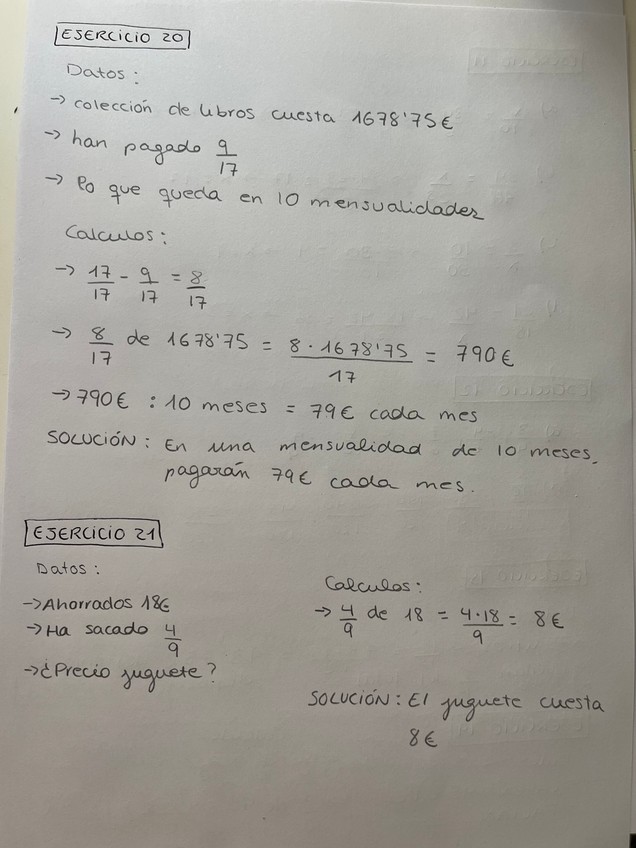 EJERCICIO 20
Datos:
→ colección de libros cuesta 1678'75€
→ han pagado 9/17
→ lo que queda en 10 mensualidades
Calculos:
→ 17/17 - 9/17 = 8/17
→ 8/17 de 1678'75 = 8·1678'75/17 = 790€
→ 790€ : 10 meses = 79€ cada mes
SOLUCIÓN: En una mensualidad de 10 meses,
pagarán 79€ cada mes.
EJERCICIO 21
Datos:
→ Ahorrados 18€
→ Ha sacado 4/9
→ ¿Precio juguete?
Calculos:
→ 4/9 de 18 = 4·18/9 = 8€
SOLUCIÓN: El juguete cuesta
8€